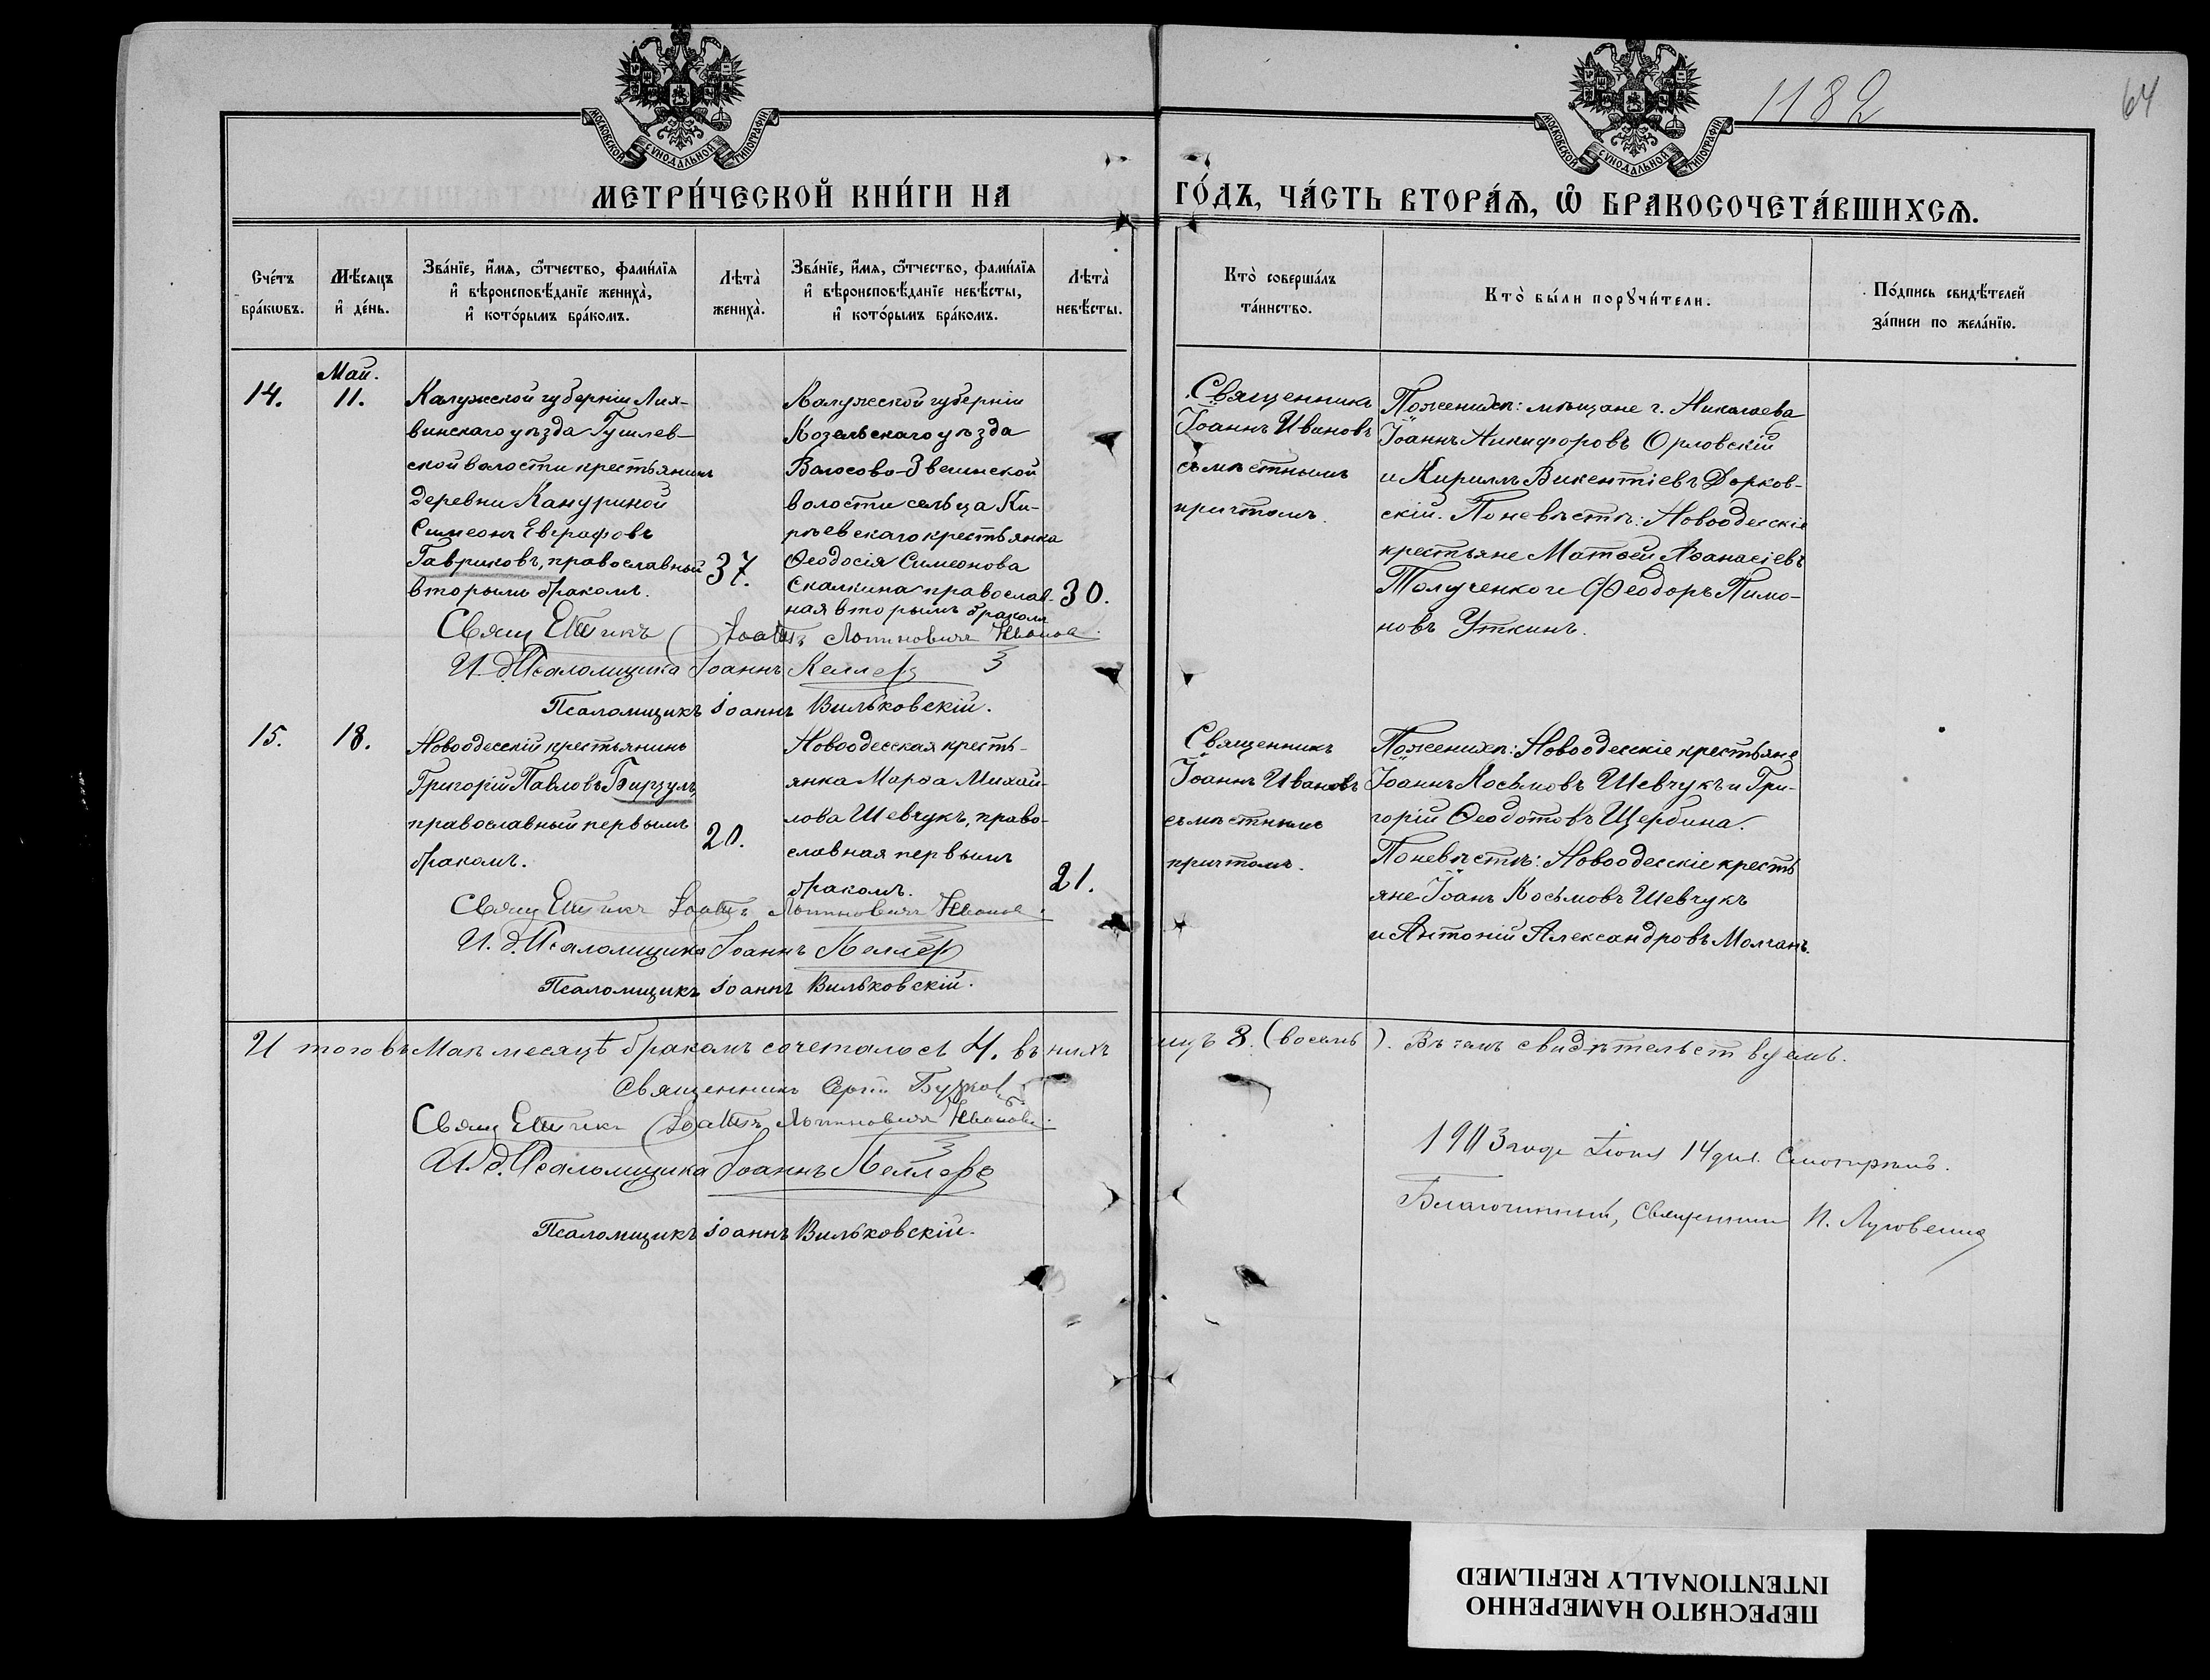 1182
64
МОСКОВСКОЙ СѴНОДАЛЬНОЙ ТИПОГРАФІИ
МОСКОВСКОЙ СѴНОДАЛЬНОЙ ТИПОГРАФІИ
МЕТРИ́ЧЕСКОЙ КНИ́ГИ НА ГО́ДЪ, ЧА́СТЬ ВТОРА́Ѧ, Ѽ БРАКОСОЧЕТА́ВШИХСѦ.
Сче́тъ
бра́кѡвъ.
Мѣ́сяцъ
и҆ де́нь.
Зва́нїе, и҆́мѧ, ѻ҆́тчество, фами́лїѧ
и҆ вѣроисповѣ́данїе жениха̀,
и҆ кото́рымъ бра́комъ.
Лѣта̀
жениха̀.
Зва́нїе, и҆́мѧ, ѻ҆́тчество, фами́лїѧ
и҆ вѣроисповѣ́данїе невѣ́сты,
и҆ кото́рымъ бра́комъ.
Лѣта̀
невѣ́сты.
Кто̀ соверша́лъ
та́инство.
Кто̀ бы́ли порꙋчи́тели.
По́дпись свидѣ́телей
за́писи по жела́нїю.
14.
Май.
11.
Калужской губерніи Лих-
винскаго уѣзда Гушлев-
ской волости крестьянинъ
деревни Кануриной
Симеонъ Евграфовъ
Гавриковъ, православный
вторымъ бракомъ.
37.
Калужской губерніи
Козельскаго уѣзда
Волосово-Звягинской
волости сельца Ки-
рѣевскаго крестьянка
Ѳеодосія Симеонова
Скалкина православ-
ная вторымъ бракомъ
30.
Священникъ
Іоаннъ Ивановъ
съ мѣстнымъ
причтомъ.
По женихѣ: мѣщане г. Николаева
Іоаннъ Никифоровъ Орловскій
и Кириллъ Викентіевъ Дорков-
скій. По невѣстѣ: Новоодесскіе
крестьяне Матѳей Аѳанасіевъ
Толученко и Феодоръ Пимо-
новъ Уткинъ.
Іоаннъ Логиновичъ Ивановъ.
И. д. Псаломщика Іоаннъ Келлеръ
Псаломщикъ іоаннъ Вильковскій.
15.
18.
Новоодесскій крестьянинъ
Григорій Павловъ Бирзулъ,
православный первымъ
бракомъ.
20.
Новоодесская кресть-
янка Марѳа Михай-
лова Шевчукъ, право-
славная первымъ
бракомъ.
21.
Священникъ
Іоаннъ Ивановъ
съ мѣстнымъ
причтомъ.
По женихѣ: Новоодесскіе крестьяне
Іоаннъ Косьмовъ Шевчукъ и Гри-
горій Ѳеодотовъ Щербина.
По невѣстѣ: Новоодесскіе кресть
яне Іоанъ Косьмовъ Шевчукъ
и Антоній Александровъ Молчанъ.
Іоаннъ Логиновичъ Ивановъ.
И. д. Псаломщика Іоаннъ Келлеръ
Псаломщикъ іоаннъ Вильковскій.
Итого въ Маѣ месяцѣ бракомъ сочеталось 4. въ нихъ лицъ 8. (восемь). Въ чемъ свидѣтельствуемъ.
Священникъ Сергій
Іоаннъ Логиновичъ Ивановъ.
И. д. Псаломщика Іоаннъ Келлеръ
Псаломщикъ іоаннъ Вильковскій.
1903 года Іюня 14 дня. Смотрѣлъ.
Благочинный, Священникъ
ПЕРЕСНЯТО НАМЕРЕННО
INTENTIONALLY REFILMED